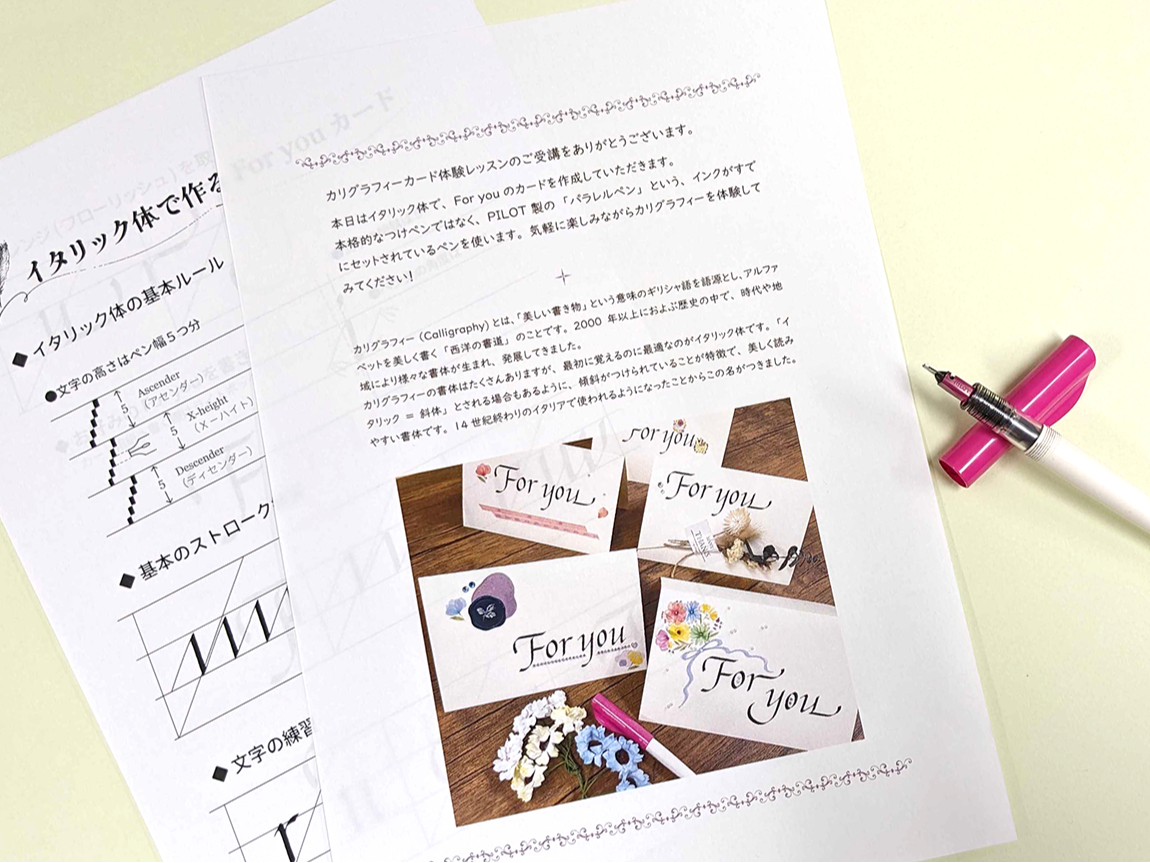 For you カード
イタリック体で作る
◆ イタリック体の基本ルール
●文字の高さはペン幅5つ分
Ascender
(アセンダー)
5
X-height
(X－ハイト)
5
Descender
(ディセンダー)
5
◆ 基本のストローク
◆ 文字の練習
r
カリグラフィーカード体験レッスンのご受講をありがとうございます。
本日はイタリック体で、For you のカードを作成していただきます。
本格的なつけペンではなく、PILOT 製の「パラレルペン」という、インクがすで
にセットされているペンを使います。気軽に楽しみながらカリグラフィーを体験して
みてください！
カリグラフィー (Calligraphy) とは、「美しい書き物」という意味のギリシャ語を語源とし、アルファ
ベットを美しく書く「西洋の書道」のことです。2000 年以上におよぶ歴史の中で、時代や地
域により様々な書体が生まれ、発展してきました。
カリグラフィーの書体はたくさんありますが、最初に覚えるのに最適なのがイタリック体です。「イ
タリック ＝ 斜体」とされる場合もあるように、傾斜がつけられていることが特徴で、美しく読み
やすい書体です。14 世紀終わりのイタリアで使われるようになったことからこの名がつきました。
For you
For you
For you
For you
For
you